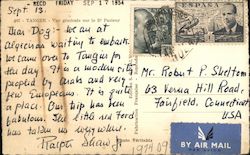 RECD FRIDAY SEP 17 1954
Sept. 13.
TANGER - Vue générale sur le Bd Pasteur
Dear Dog: We are at
Algeciras waiting to embark.
We came over to Tangier for
the day. It is a modern city
peopled by Arabs and very
few Europeans. It is quite
a place. Our trip has been
fabulous. The little red Ford
has taken us everywhere.
Ralph Shaw
Mr. Robert P. Shelton
63 Verna Hill Road,
Fairfield, Connecticut
USA
BY AIR MAIL
PAR AVION